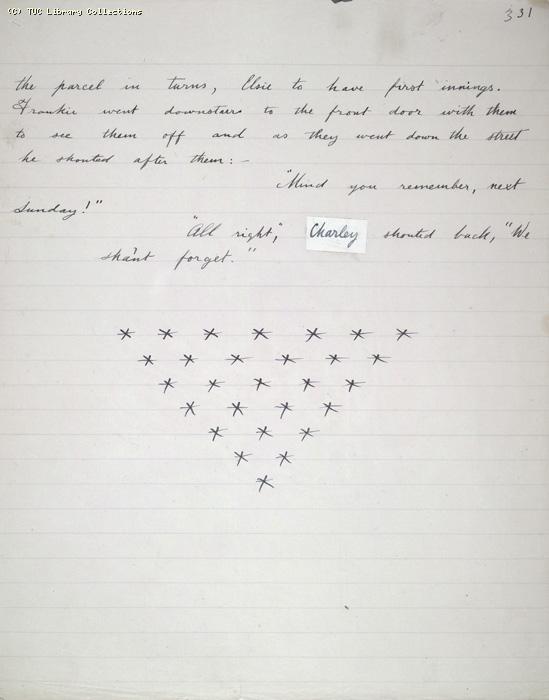 (C) TUC Library Collections
331
the parcel in turns, Elsie to have first innings.
Frankie went downstairs to the front door with them
to see them off and as they went down the street
he shouted after them:-
"Mind you remember, next
Sunday!"
"All right," Charley shouted back, "We
sha'nt forget."
* * * * * * *
* * * * * *
* * * * *
* * * *
* * *
* *
*